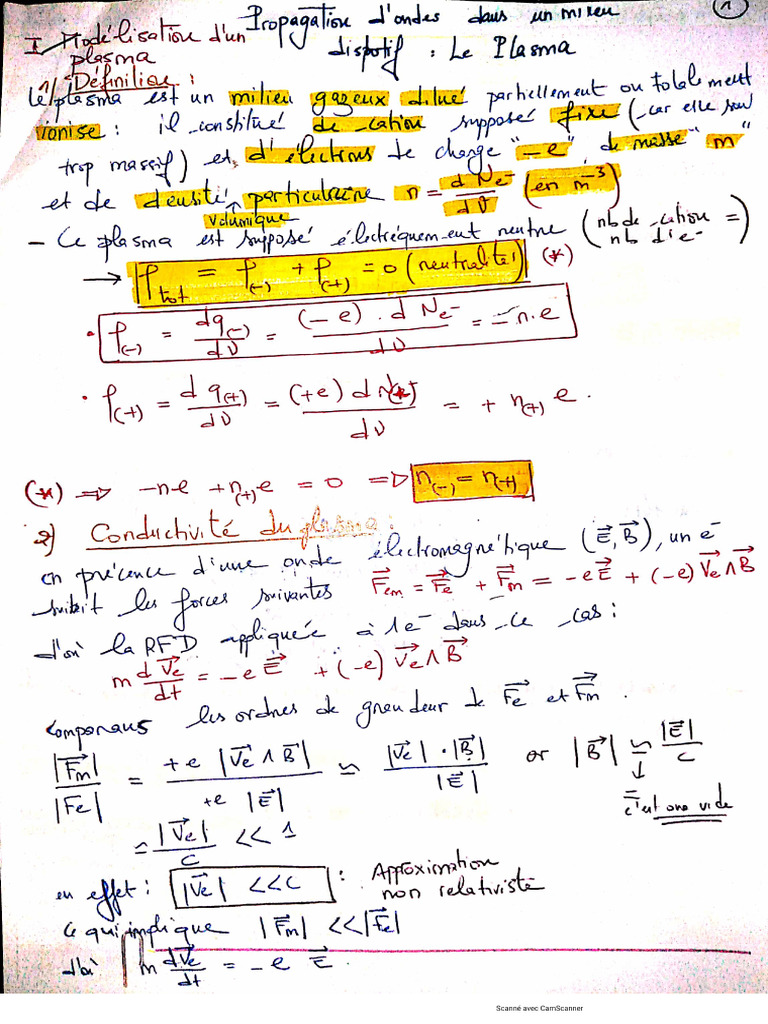 Propagation d'ondes dans un milieu ①
dispersif : Le Plasma
I - Modélisation d'un
plasma
1/ Définition :
Le plasma est un milieu gazeux dilué partiellement ou totalement
ionisé : il constitué de cation supposé fixe (car elle sont
trop massif) et d'électrons de charge "-e", de masse "m"
et de densité particulaire n = dNe-/dV (en m⁻³)
volumique
- Ce plasma est supposé électriquement neutre (nb de cation = nb d'e-)
→ ρtot = ρ(-) + ρ(+) = 0 (neutralité) (*)
• ρ(-) = dq(-)/dV = (-e) . dNe-/dV = -n.e
• ρ(+) = dq(+)/dV = (+e) dN(+)/dV = + n(+) e.
(*) ⇒ -ne + n(+)e = 0 ⇒ n(-) = n(+)
2) Conductivité du plasma :
en présence d'une onde électromagnétique (E⃗, B⃗), un e-
subit les forces suivantes F⃗em = F⃗e + F⃗m = -eE⃗ + (-e) V⃗e∧B⃗
d'où la RFD appliqueé à 1e- dans ce cas :
m dV⃗e/dt = -e E⃗ + (-e) V⃗e∧B⃗
Comparons les ordres de grandeur de F⃗e et F⃗m.
|F⃗m|/|Fe| = +e |V⃗e ∧ B⃗|/+e |E⃗| ≃ |V⃗e| . |B⃗|/|E⃗| or |B⃗| ≃ |E⃗|/c
c'est une vide
≃ |V⃗e|/c << 1
en effet : |V⃗e| <<c : Approximation
non relativiste
ce qui implique |F⃗m| << |F⃗e|
d'où m dV⃗e/dt = -e E⃗.
Scanné avec CamScanner